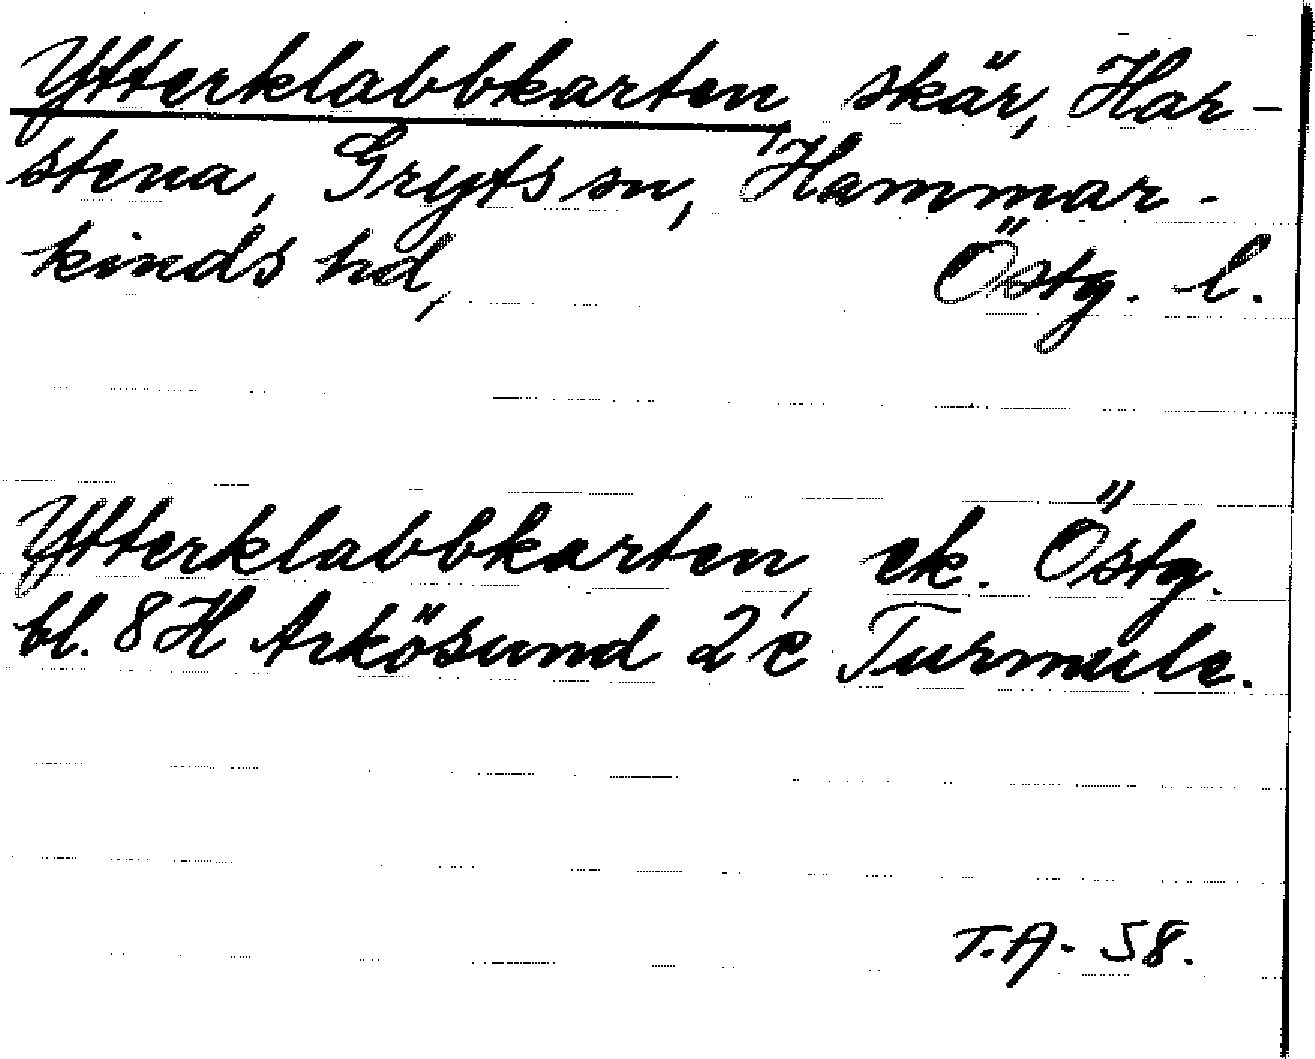 Ytterklabbkarten, skär, Har-
stena, Gryts sn, Hammar-
kinds hd, Östg. l.
Ytterklabbkarten, ek. Östg.
bl. 8 H Arkösund 2 c Turmule.
T.A- 58.